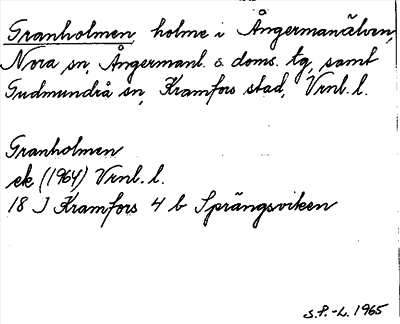 Granholmen, holme i Ångermanälven,
Nora sn, Ångermanl. s. doms. tg, samt
Gudmundrå sn, Kramfors stad, Vrnl. l.
Granholmen
ek (1964) Vrnl. l.
18 J Kramfors 4 b Sprängsviken
S.P.-L. 1965